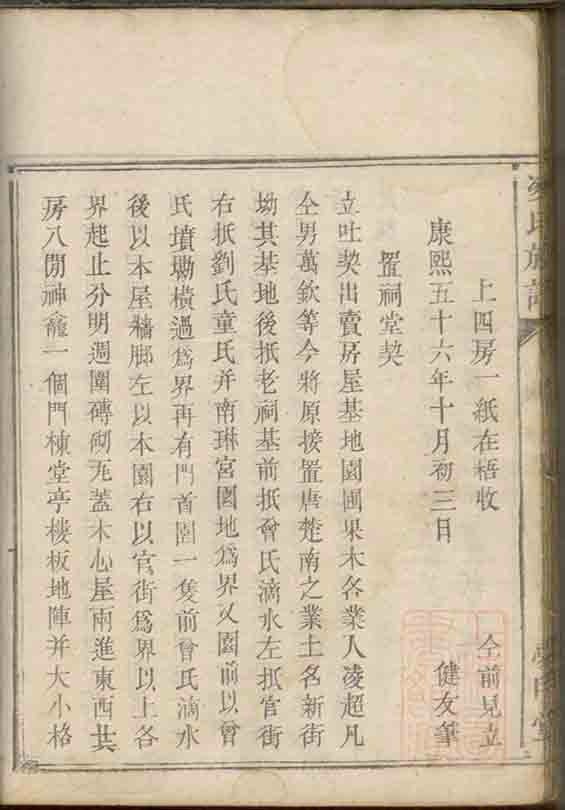 上四房一紙在梧收 仝前見立
康熙五十六年十月初三日 健友筆
置祠堂契
立吐契出賣房屋基地園圃果木各業人凌超凡
仝男萬欽等今將原接置唐楚南之業土名新街
坳其基地後抵老祠基前抵曾氏滴水左抵官街
右抵劉氏童氏并南琳宮園地爲界又園前以曾
氏墳墈橫過爲界再有門首園一隻前曾氏滴水
後以本屋牆脚左以本園右以官街爲界以上各
界起止分明週圍磚砌瓦蓋木心屋兩進東西共
房八間神龕一個門棟堂亭樓板地陣并大小格